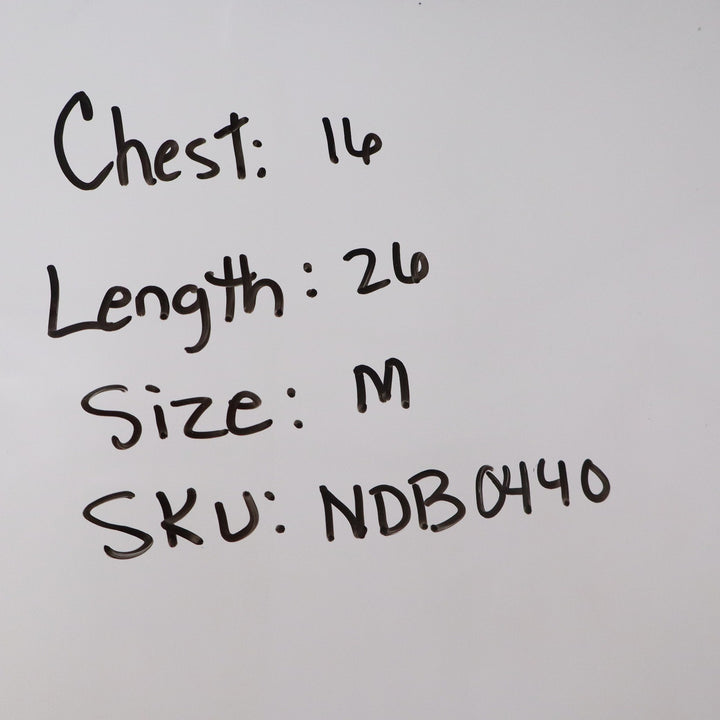 Chest: 16
Length: 26
Size: M
SKU: NDB0440